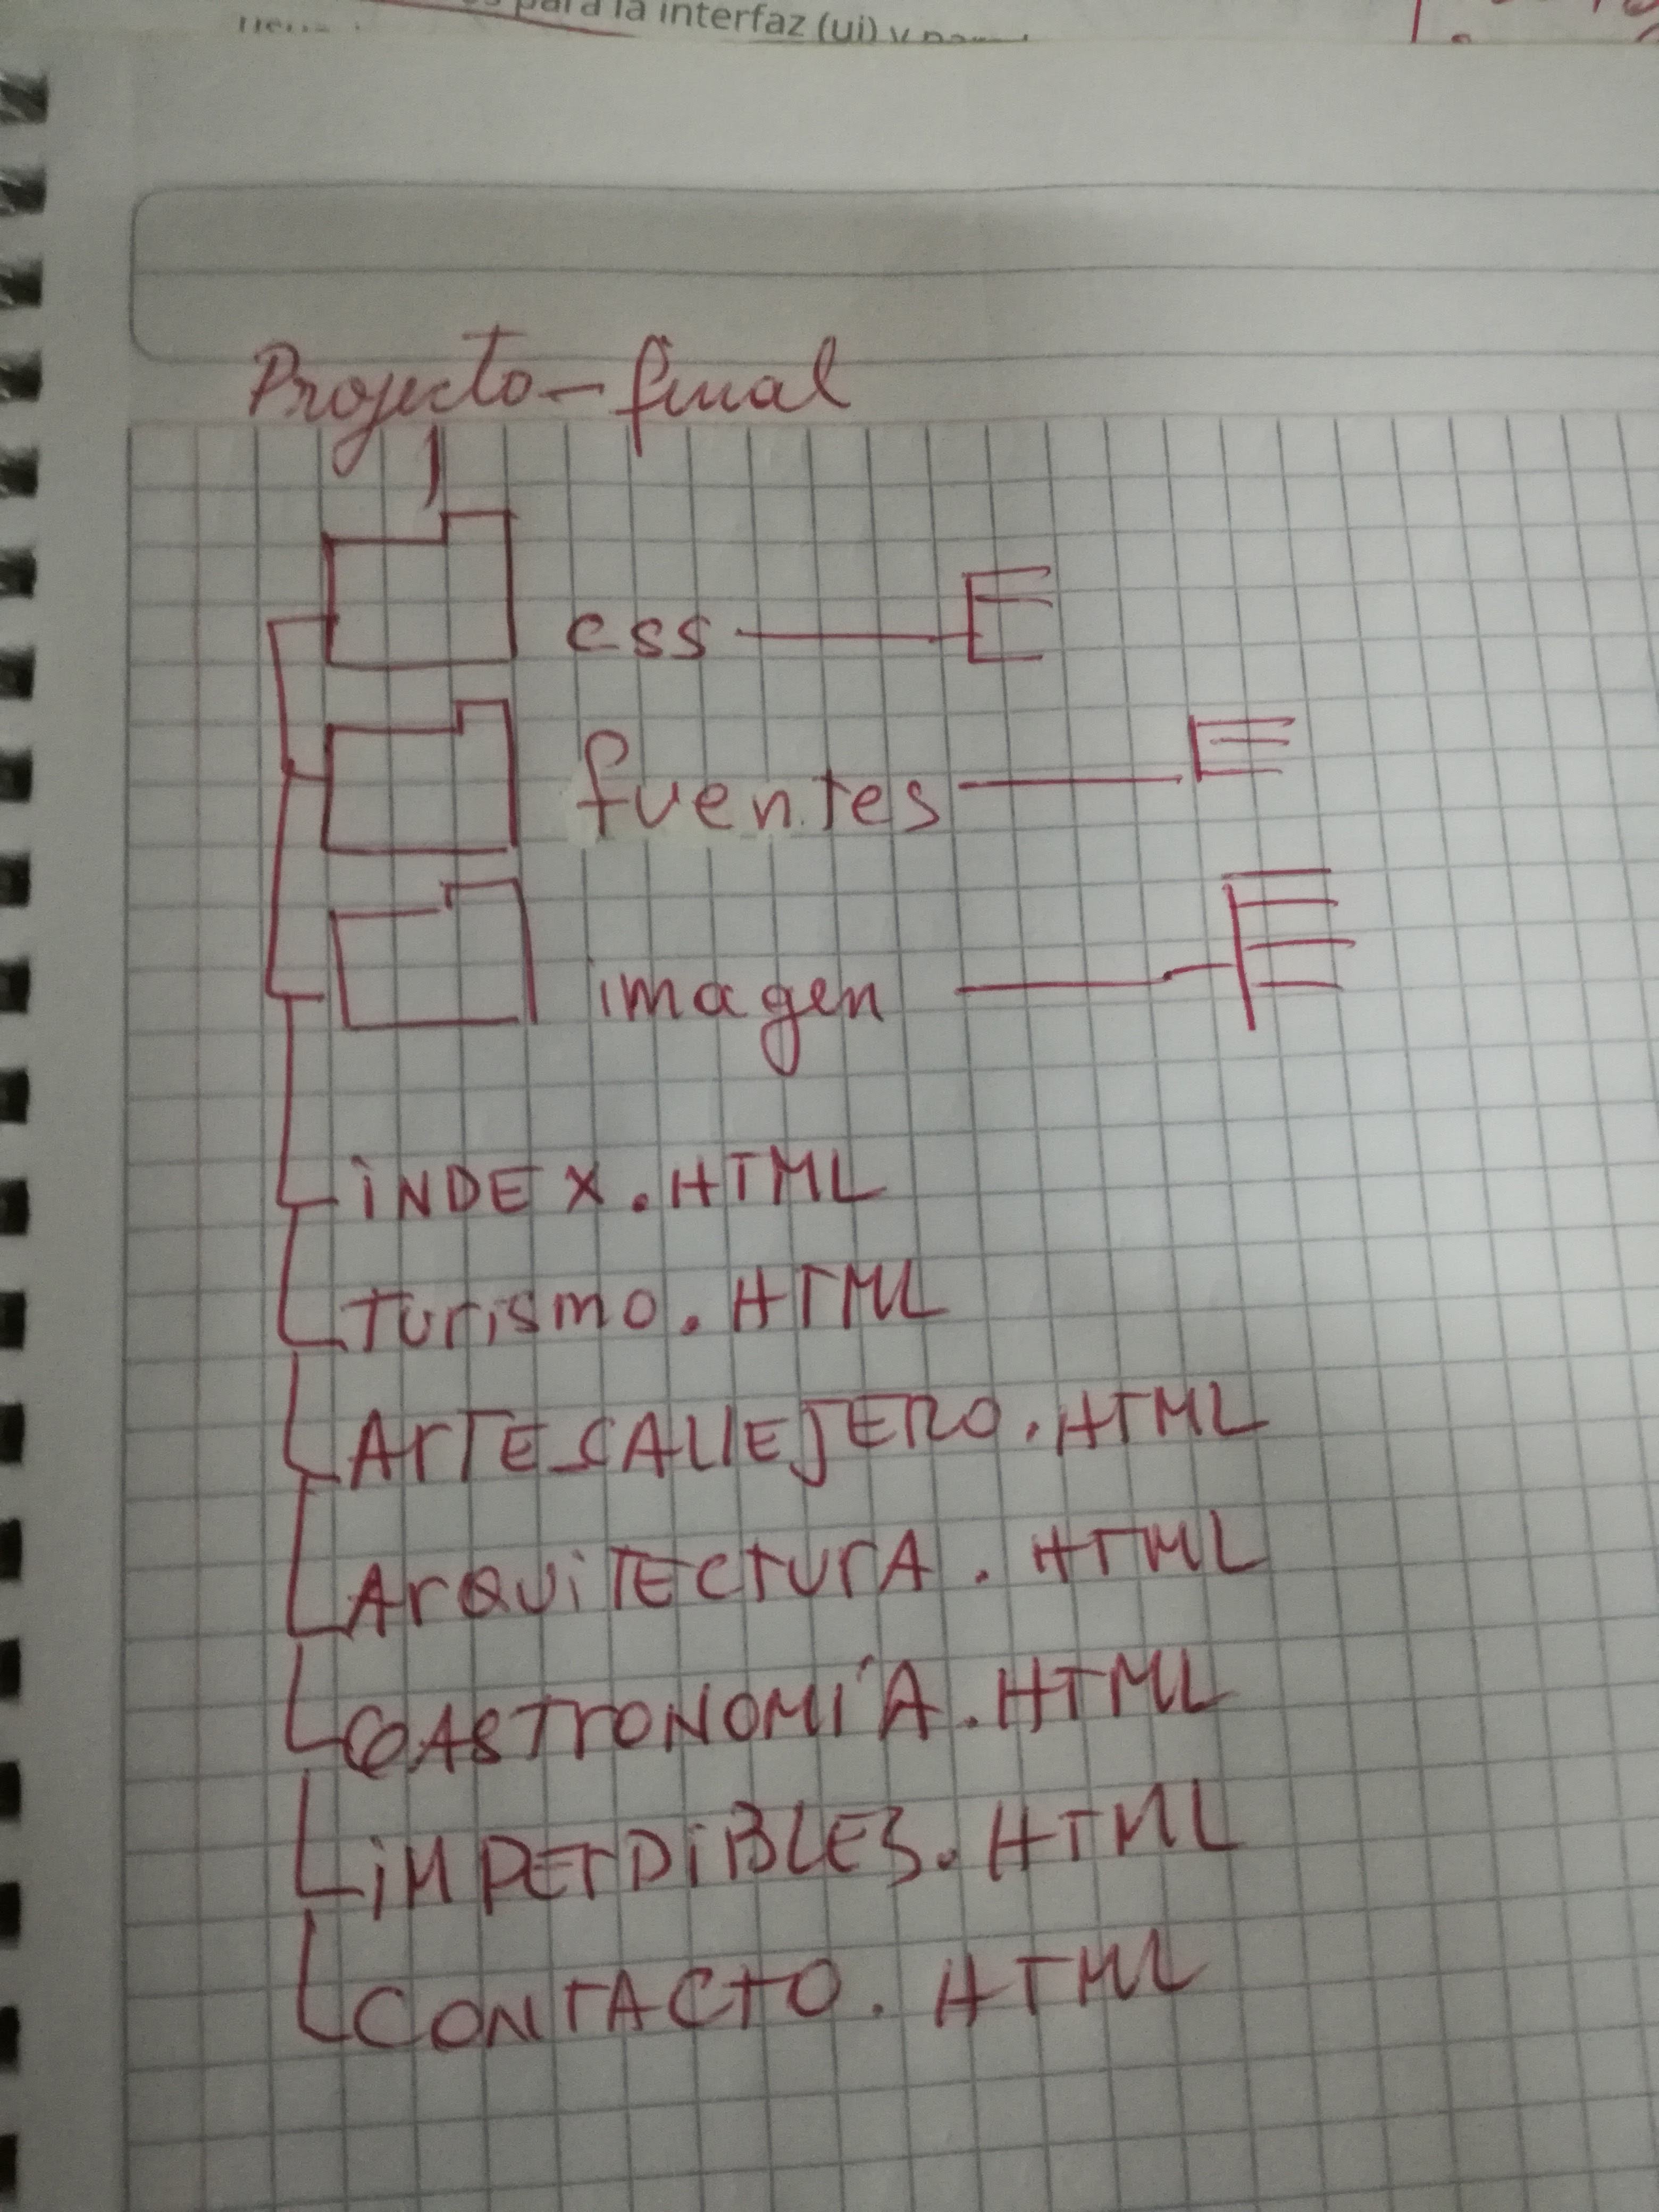 para la interfaz (ui) y
Proyecto-final
css
fuentes
imagen
iNDEX.HTML
Turismo.HTML
ArTESCALLEJERO.HTML
ArQUiTECtUrA.HTML
GASTrONOMíA.HTML
iMPErDiBLES.HTML
CONTACtO.HTML